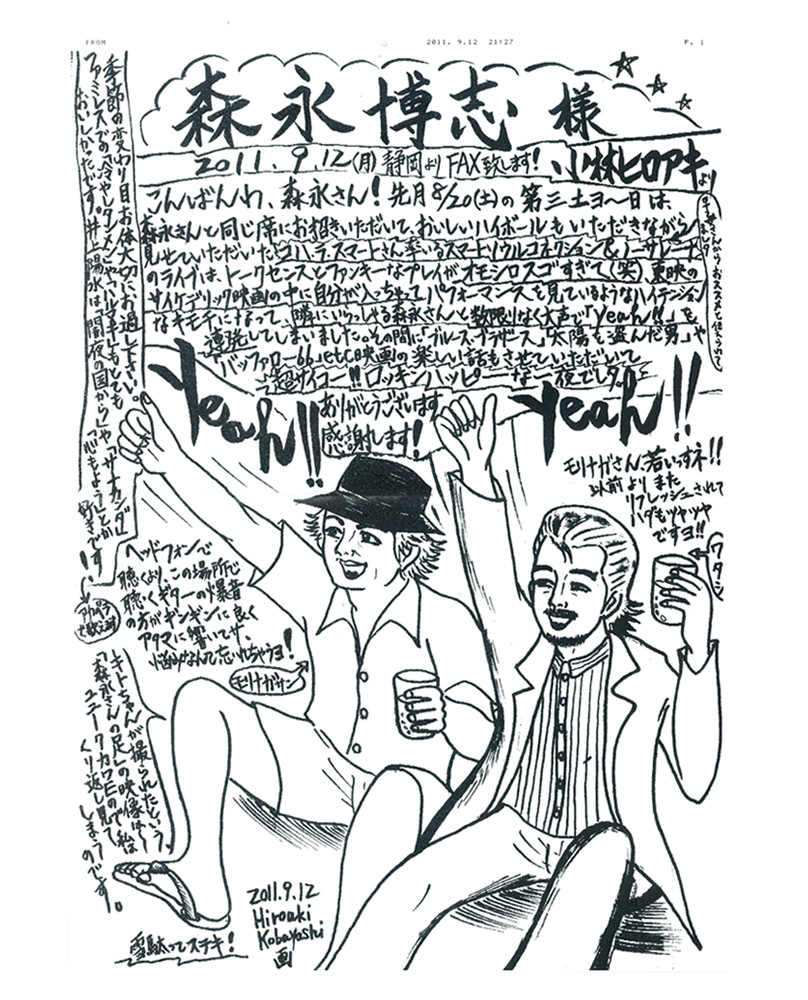 FROM
2011. 9.12 21:27
P. 1
森永博志 様
2011.9.12(月)静岡よりFAX致します!
小林ヒロアキより
こんばんわ、森永さん! 先月8/20(土)の第三土ヨー日は、
森永さんと同じ席にお招きいただいて、おいしいハイボールもいただきながら
見せていただいたコハ・ラ・スマートさん率いるスマートソウルコネクション&
のライブは、トークセンスとファンキーなプレイがオモシロスゴすぎて(笑)、東映の
サイケデリック映画の中に自分が入っちゃってパフォーマンスを見ているようなハイテンション
なキモチになって、隣にいらっしゃる森永さんと数限りなく大声で「Yeah!!」を
連発してしまいました。その間に「ブルース・ブラザース」「太陽を盗んだ男」や
「バッファロー66」etc映画の楽しい話もさせていただいて
超サイコー!!ロッキンハッピーな一夜でした。
Yeah!!
ありがとうございます
感謝します!
Yeah!!
モリナガさん、若いっすネ!!
以前より、また
リフレッシュされて
ハダもツヤツヤ
ですヨ!!
ワタシ
季節の変わり目お体大切にお過し下さい。
ファミレスでの「冷やしタンメン」や
おいしかったです。井上陽水は「闇夜の国から」や「サナカンダ」
「心もよう」とか
好きです!
ヘッドフォンで
聴くより、この場所で
聴くギターの爆音
の方がギンギンに良く
アタマに響いてサ、
悩みなんて忘れちゃうヨ!
モリナガサン
キトちゃんが撮られたという
「森永さんの足」の映像は、
ユニークカワEので、私は
くり返し見て
しまうのです。
雪駄ってステキ!
2011.9.12
Hiroaki
Kobayashi
画